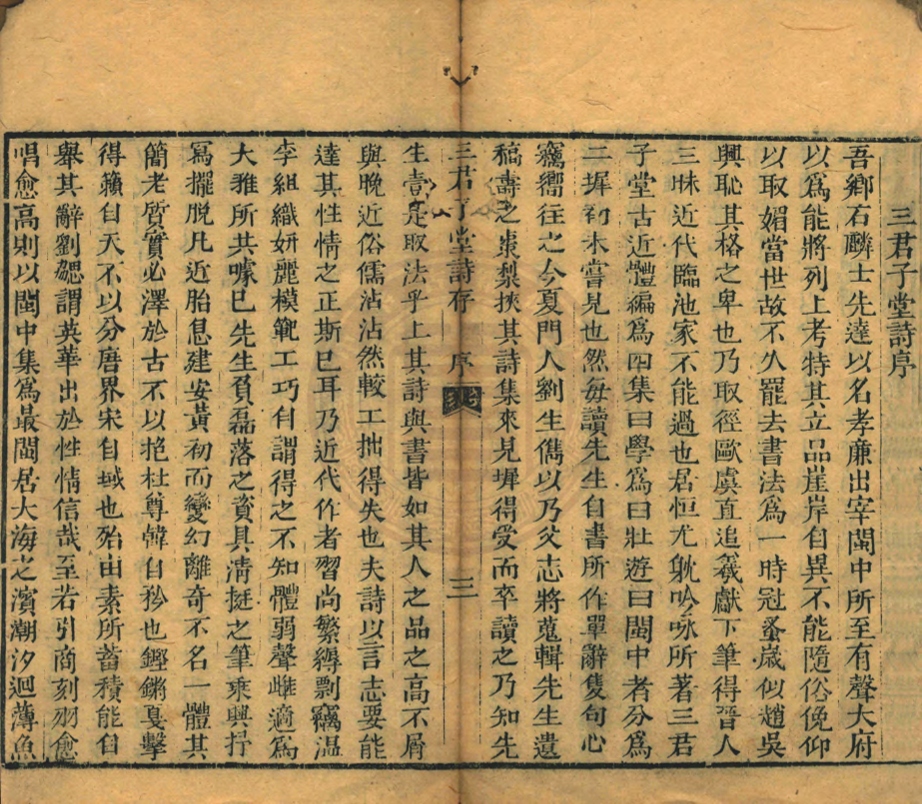 三君子堂詩序
吾鄉石麟士先達以名孝廉出宰閩中所至有聲大府
以爲能將列上考特其立品崖岸自異不能隨俗俛仰
以取媚當世故不久罷去書法爲一時冠蚤歲似趙吳
興恥其格之卑也乃取徑歐虞直追羲獻下筆得晉人
三昧近代臨池家不能過也居恒尤躭吟咏所著三君
子堂古近體編爲四集曰學爲曰壯遊曰閩中者分爲
二墀初未嘗見也然每讀先生自書所作單辭隻句心
竊嚮往之今夏門人劉生儁以乃父志將蒐輯先生遺
稿壽之棗梨挾其詩集來見墀得受而卒讀之乃知先
三君子堂詩存 序 三
生壹是取法乎上其詩與書皆如其人之品之高不屑
與晚近俗儒沾沾然較工拙得失也夫詩以言志要能
達其性情之正斯已耳乃近代作者習尚繁縟剽竊温
李組織妍麗模範工巧自謂得之不知體弱聲雌適爲
大雅所共噱已先生負磊落之資具淸挺之筆乘興抒
寫擺脫凡近胎息建安黃初而變幻離奇不名一體其
簡老質實必澤於古不以挹杜尊韓自矜也鏗鏘戛擊
得籟自天不以分唐界宋自域也殆由素所蓄積能自
舉其辭劉勰謂英華出於性情信哉至若引商刻羽愈
唱愈高則以閩中集爲最閩居大海之濱潮汐迴薄魚